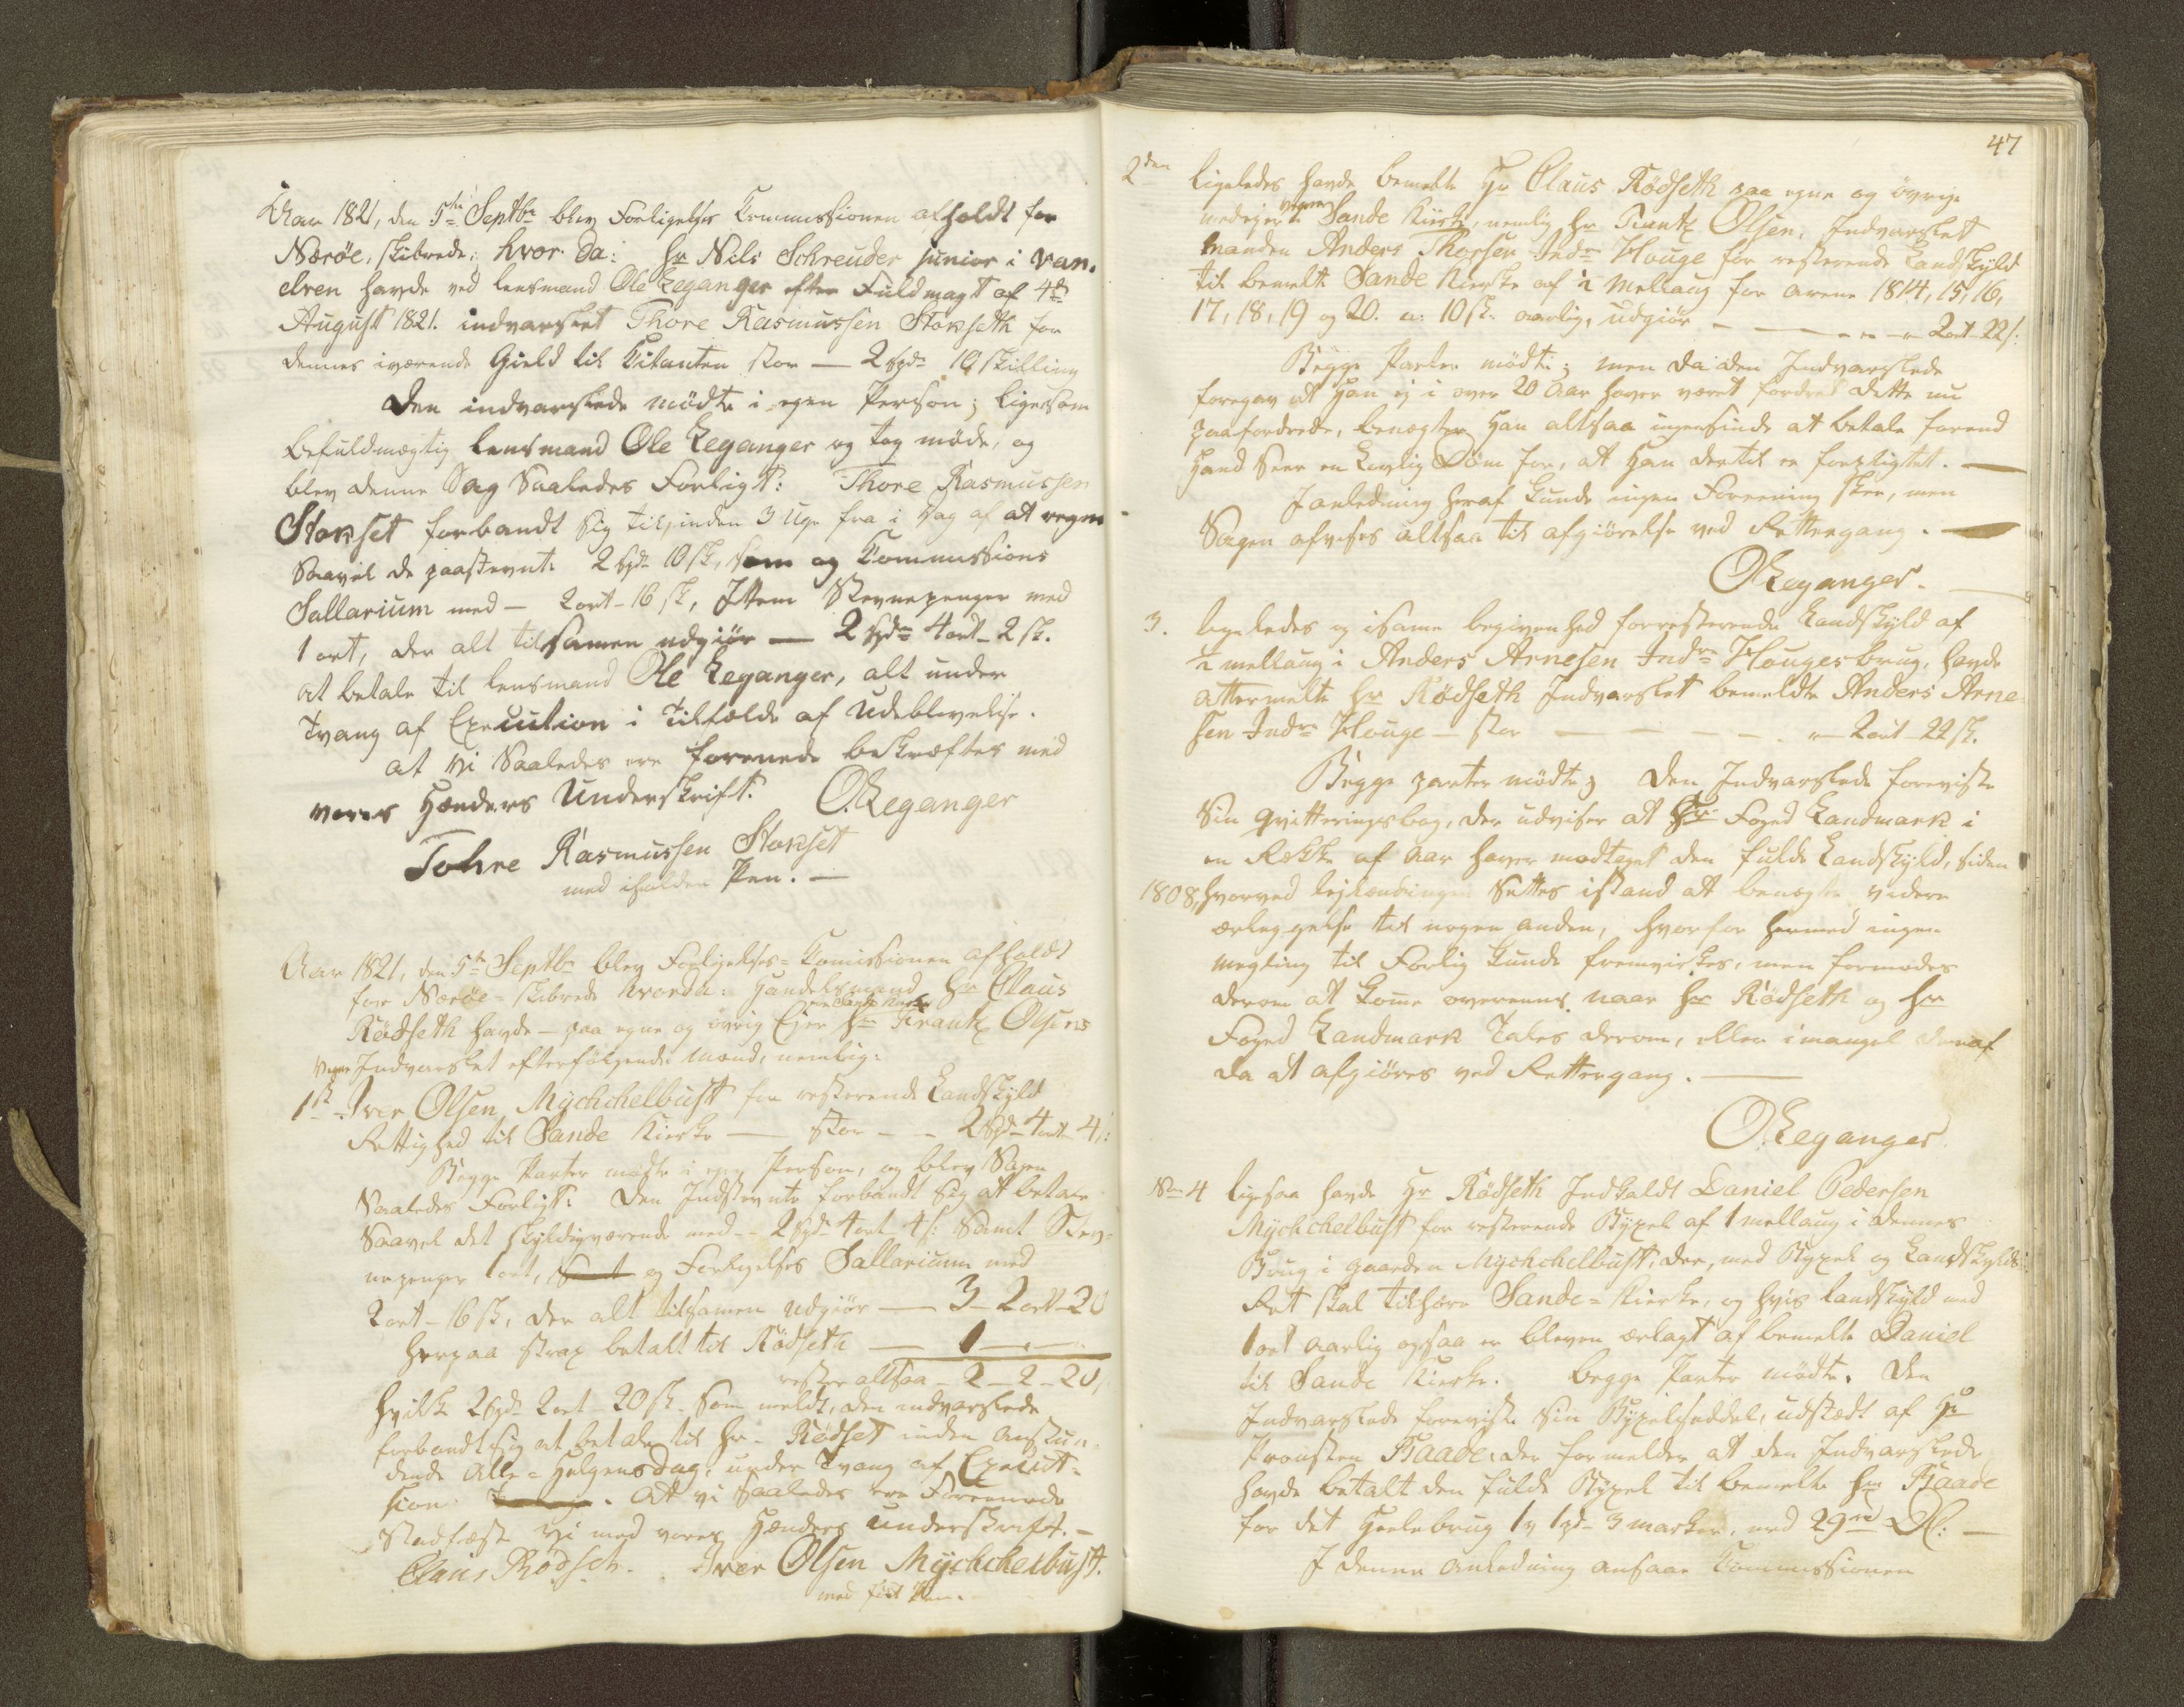 Aar 1821, den 5te Septbr blev Forligelses Commissionen afholdt for
Nærøe, skibrede; hvor da: Hr Nils Schreuder junior i Van,
elven havde ved lensmand Ole Leganger efter Fuldmagt af 4de
August 1821. indvarslet Thore Rasmussen Stokseth for
dennes iværende Gield til Citanten stor — 2 spdr 10 skilling
Den indvarslede mødte i egen Person; ligesom
befuldmægtig lensmand Ole Leganger og tog møde, og
blev denne Sag Saaledes Forligt: Thore Rasmussen
Stokset forbandt sig til, inden 3 Uger fra i Dag af at regne
saavel de paastevnte 2 spdr 10 sk, som og Commissions
Sallarium med — 2 ort - 16 sk, Item Stevnepenger med
1 ort, der alt tilsamen udgiør — 2 spdr 4 ort - 2 sk.
at betale til lensmand Ole Leganger, alt under
Tvang af Execution i Tilfælde af Udeblivelse.
at Vi Saaledes ere forenede bekræftes med
vores Hænders Underskrift. O. Leganger
Tohre Rasmussen Stokset
med iholden Pen. —
Aar 1821, den 5te Septbr blev Forligelses=Comissionen afholdt
for Nærøe=skibrede hvorda: Handelsmand Hr Claus
Rødseth havde — paa egne og øvrig Ejer Hr Frantz Olsens
vegne Indvarslet efterfølgende Mænd, nemlig:
1st Iver Olsen Myckchelbust for resterende Landskyld
Rettighed til Sande Kierke — stor - - 2 spd - 4 ort - 4 s:
Begge Parter mødte i egen Person, og blev Sagen
Saaledes Forligt: Den Indstevnte forbandt sig at betale
Saavel det skyldigværende med - - 2 spdr 4 ort 4 s: samt Stev=
nepenger 1 ort, og Forligelses Sallarium med
2 ort - 16 sk, der alt tilsamen udgiør — 3 - 2 ort - 20
herpaa strax betalt til Rødseth — 1 — —
rester altsaa - 2 - 2 - 20,
hvilke 2 spdr 2 ort - 20 sk. Som meldt, den indvarslede
forbandt sig at betale til Hr. Rødset inden anstun=
dende Alle=Helgensdag, under Tvang af Execut=
sion. At vi Saaledes ere Foreenede
Stadfæste Vi med vores Hænders underskrift. —
Claus Rødseth. Iver Olsen Myckchelbust.
med ført Pen.
47
2den ligeledes havde bemelte Hr Claus Rødseth paa egne og øvrige
medejere vegne Sande Kierke, nemlig Hr Frantz Olsen, Indvarslet
Manden Anders Thorsen Indre Houge for resterende Landskyld
til bemelte Sande Kierke af ½ Mellaug for aarene 1814, 15, 16,
17, 18, 19 og 20. a: 10 sk. aarlig, udgiør - — - - - 2 ort 22 s:
Begge Parter mødte; men da den Indvarslede
foregav at Han ej i over 20 Aar haver været fordret dette nu
paafordrede, benægter Han altsaa ingensinde at betale forend
Hand Seer en Lovlig Dom for, at Han dertil er forpligtet. —
I anledning heraf kunde ingen Foreening skee, men
Sagen afvises altsaa til afgiørelse ved Rettergang. —
O Leganger.
3. ligeledes og i same begivenhed for resterende Landskyld af
½ mellaug i Anders Arnesen Indre Houges brug, havde
attermelte Hr Rødseth Indvarslet bemeldte Anders Arne
sen Indre Houge — stor — — — — 2 ort - 22 sk.
Begge parter mødte; Den Indvarslede foreviste
Sin qvitteringsbog, der udviser at Hr Foged Landmark i
en Række af Aar haver modtaget den fulde Landskyld, siden
1808, hvorved lejlendingen Settes istand at benægte videre
ærleggelse til nogen anden, hvorfor hermed ingen
megling til Forlig kunde fremvirkes, men formodes
derom at kome overeens, naar Hr Rødseth og Hr
Foged Landmark Tales derom, eller i mangel deraf
da at afgiøres ved Rettergang. —
O. Leganger
No 4 ligesaa havde Hr Rødseth Indkaldt Daniel Pedersen
Myckchelbust for resterende Bygsel af 1 mellaug i dennes
Brug i gaarden Myckchelbust, der, med Bygsel og Landskylds
Ret skal tilhøre Sande=Kierke, og hvis landskyld med
1 ort aarlig ogsaa er bleven ærlagt af bemelte Daniel
til Sande Kierke. Begge Parter mødte. Den
Indvarslede foreviste Sin Bygselseddel, udstædt af Hr
Provsten Raade, der formelder at den Indvarslede
havde betalt den fulde Bygsel til bemelte Hr Raade
for det Heele brug 1 v 1 pd - 3 marker, med 29 rd.
I denne Anledning ansaae Commissionen